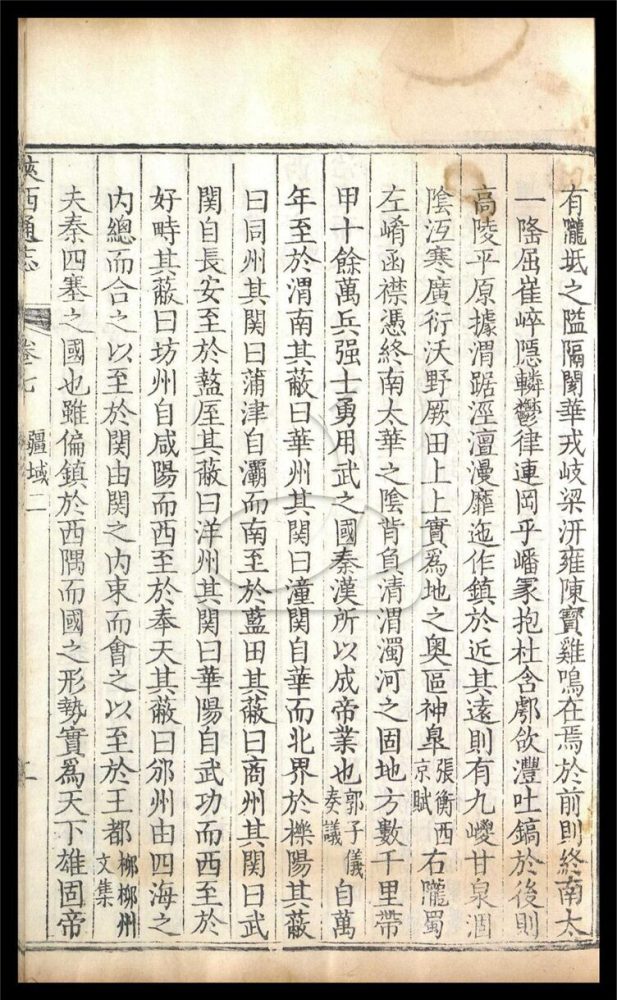 有隴坻之隘隔閡華戎岐梁汧雍陳寳雞鳴在焉於前則終南太
一隆屈崔崪隱轔鬱律連岡乎嶓冢抱杜含鄠欱灃吐鎬於後則
高陵平原據渭踞涇澶漫靡迤作鎮於近其遠則有九嵕甘泉涸
陰沍寒廣衍沃野厥田上上實爲地之奧區神皐張衡西京賦右隴蜀
左崤函襟憑終南太華之陰背負清渭濁河之固地方數千里帶
甲十餘萬兵强士勇用武之國秦漢所以成帝業也郭子儀奏議自萬
年至於渭南其蔽曰華州其関曰潼関自華而北界於櫟陽其蔽
曰同州其関曰蒲津自灞而南至於藍田其蔽曰商州其関曰武
関自長安至於盩厔其蔽曰洋州其関曰華陽自武功而西至於
好畤其蔽曰坊州自咸陽而西至於奉天其蔽曰邠州由四海之
内總而合之以至於関由関之内束而會之以至於王都柳柳州文集
夫秦四塞之國也雖偏鎮於西隅而國之形勢實爲天下雄固帝
陜西通志
卷七
疆域二
二